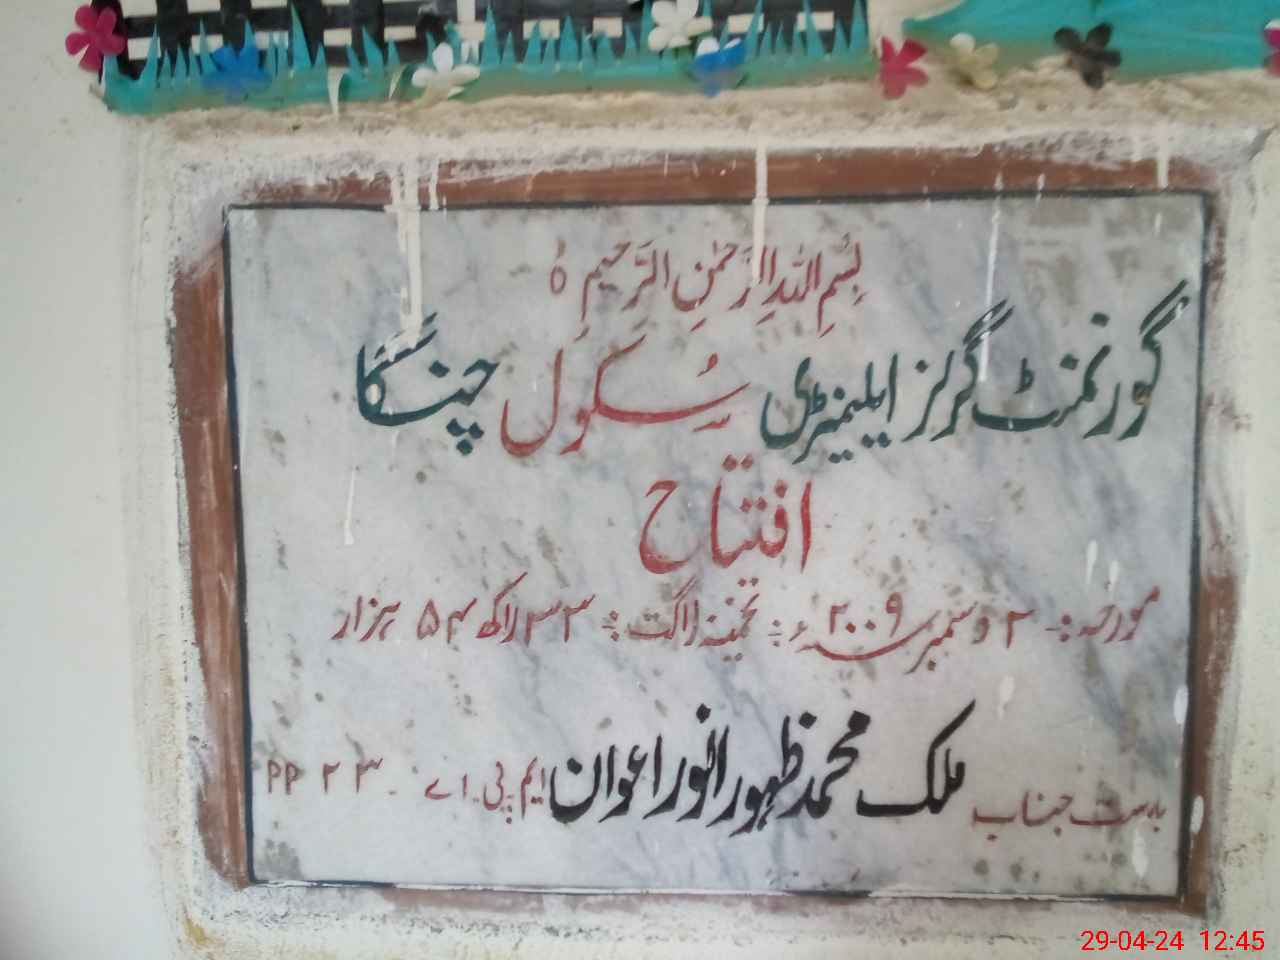 بِسْمِ اللہِ الرَّحْمٰنِ الرَّحِیْمِ ہ
گورنمنٹ گرلز ایلیمنٹری سُکول چینگا
افتتاح
مورخہ :- ۲ دسمبر ۲۰۰۹ء ÷ تخمینہ لاگت :- ۳۳ لاکھ ۵۴ ہزار
بدست جناب ملک محمد ظہور انور اعوان ایم پی اے - PP ۲۳
29-04-24 12:45